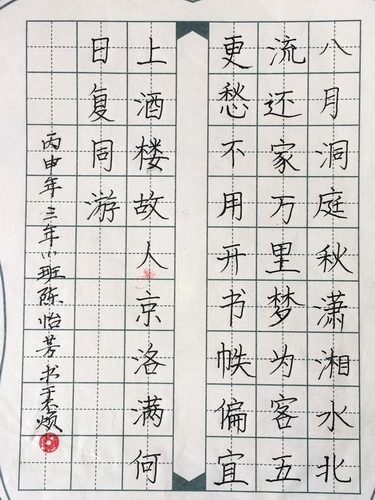 八月洞庭秋潇湘水北
流还家万里梦为客五
更愁不用开书帙偏宜
上酒楼故人京洛满何
日复同游
丙申年三年八班陈怡芳书于